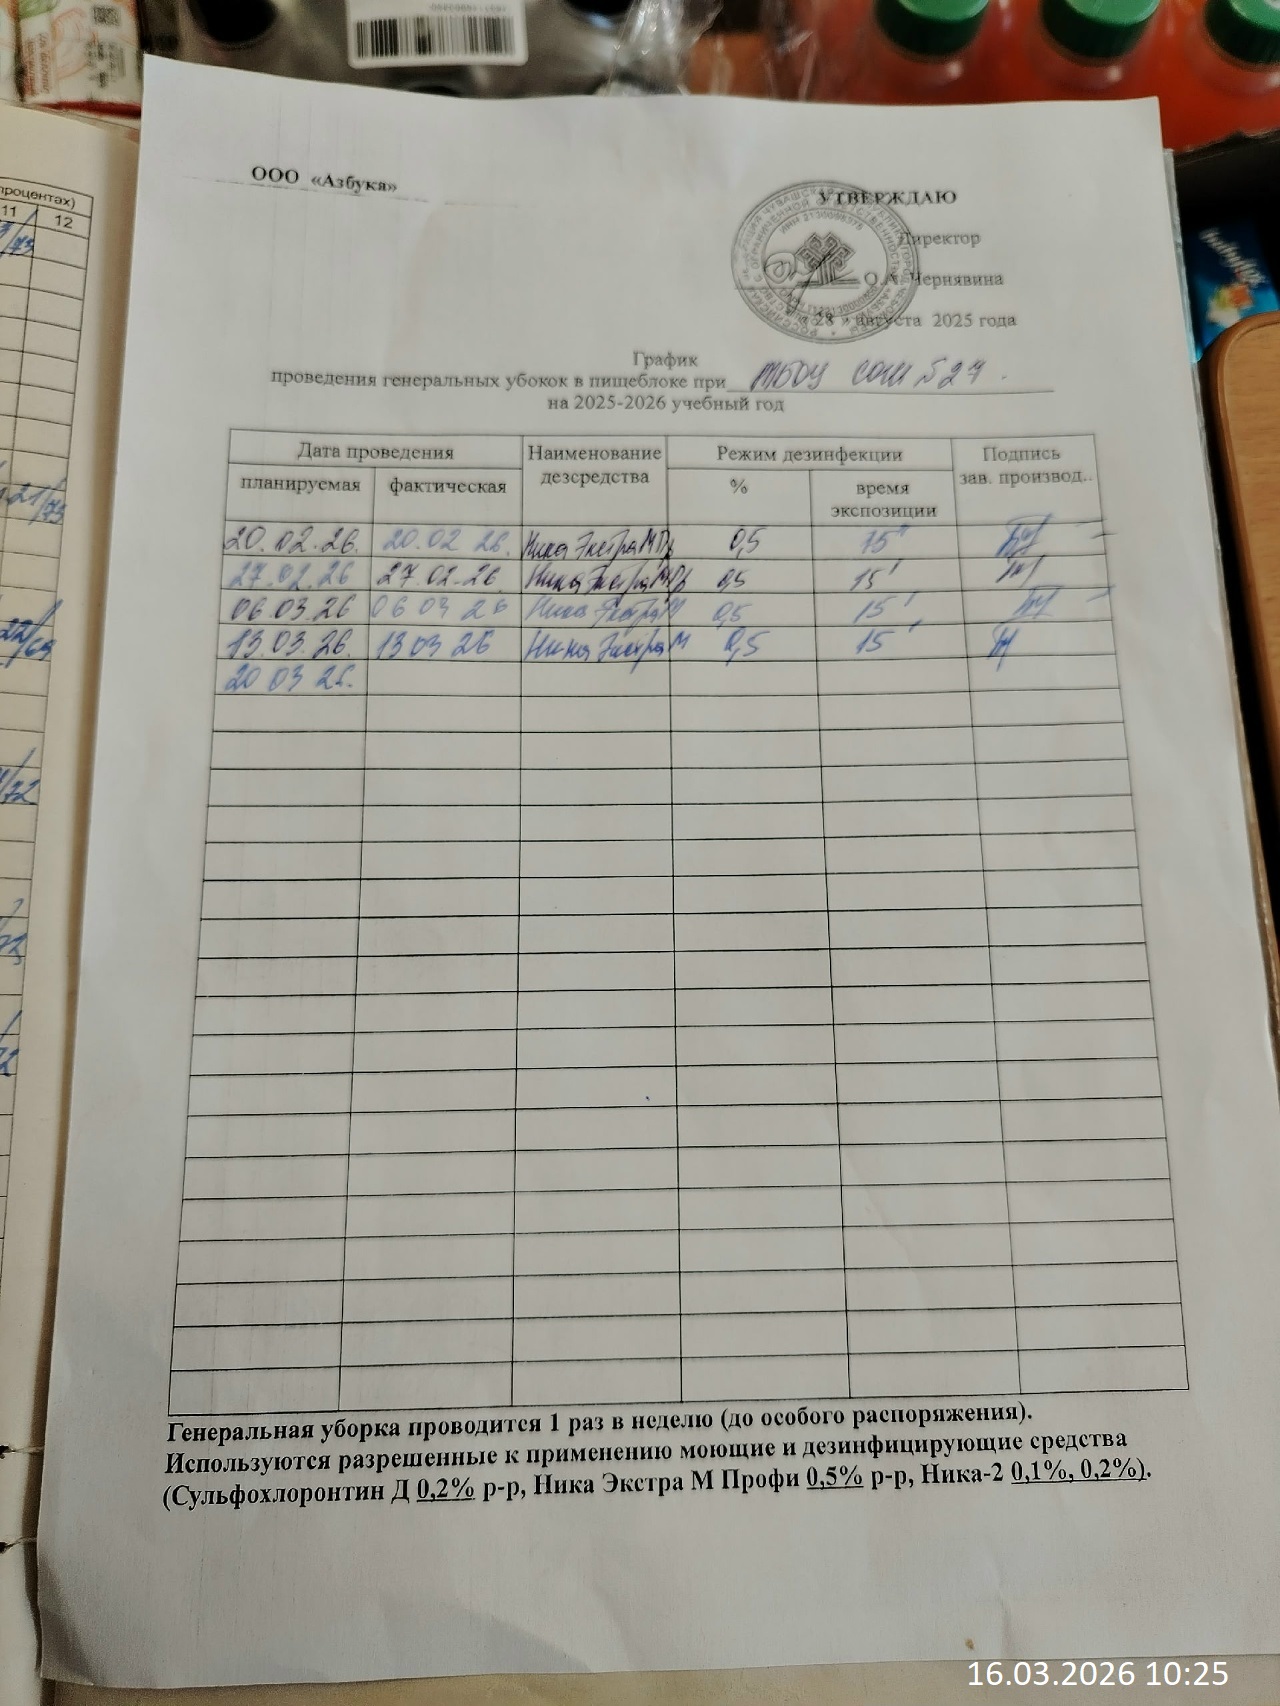 процентах)
11 12
ООО «Азбука»
УТВЕРЖДАЮ
Директор
О.А. Чернявина
« 28 » августа 2025 года
График
проведения генеральных убокок в пищеблоке при МБОУ СОШ №27.
на 2025-2026 учебный год
Дата проведения Наименование дезсредства Режим дезинфекции Подпись зав. производ..
планируемая фактическая % время экспозиции
20.02.26. 20.02 26. Ника Экстра М 0,5 15"
27.02.26 27.02.26 Ника Экстра М 0,5 15'
06.03.26 06 03 26 Ника Экстра М 0,5 15'
13.03.26. 13 03 26 Ника Экстра М 0,5 15'
20 03 26.
Генеральная уборка проводится 1 раз в неделю (до особого распоряжения).
Используются разрешенные к применению моющие и дезинфицирующие средства
(Сульфохлоронтин Д 0,2% р-р, Ника Экстра М Профи 0,5% р-р, Ника-2 0,1%, 0,2%).
16.03.2026 10:25